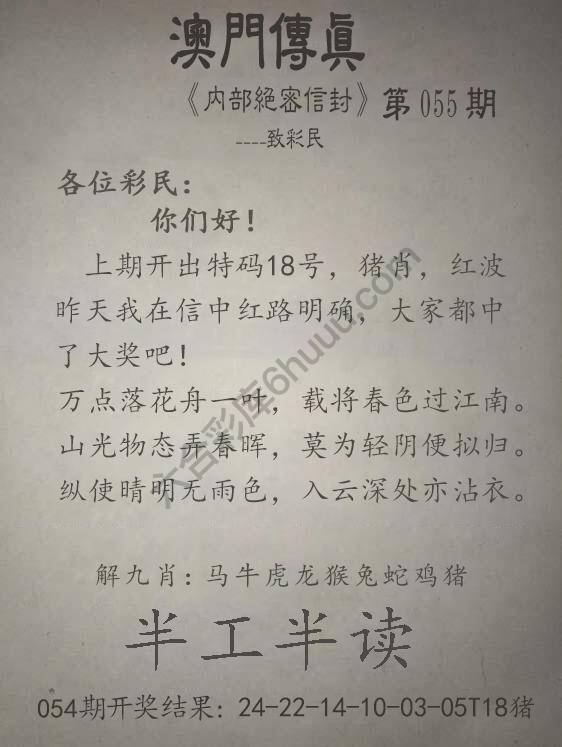 澳門傳眞
《内部絕密信封》第055期
----致彩民
各位彩民：
你们好！
上期开出特码18号，猪肖，红波
昨天我在信中红路明确，大家都中
了大奖吧！
万点落花舟一叶，载将春色过江南。
山光物态弄春晖，莫为轻阴便拟归。
纵使晴明无雨色，入云深处亦沾衣。
解九肖：马牛虎龙猴兔蛇鸡猪
半工半读
054期开奖结果：24-22-14-10-03-05T18猪
六合彩库6huuu.com